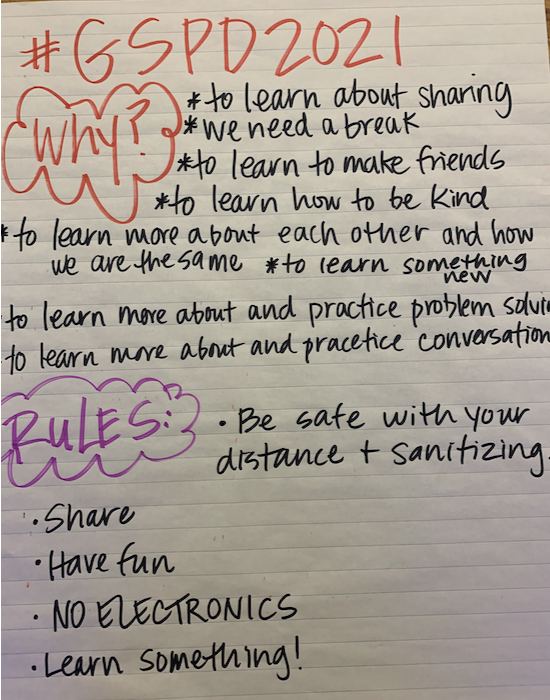 #GSPD2021
Why?
*to learn about sharing
*we need a break
*to learn to make friends
*to learn how to be kind
*to learn more about each other and how
we are the same *to learn something
new
to learn more about and practice problem solvin
to learn more about and pracetice conversation
RULES:
· Be safe with your
distance + sanitizing.
· Share
· Have fun
· NO ELECTRONICS
· Learn something!